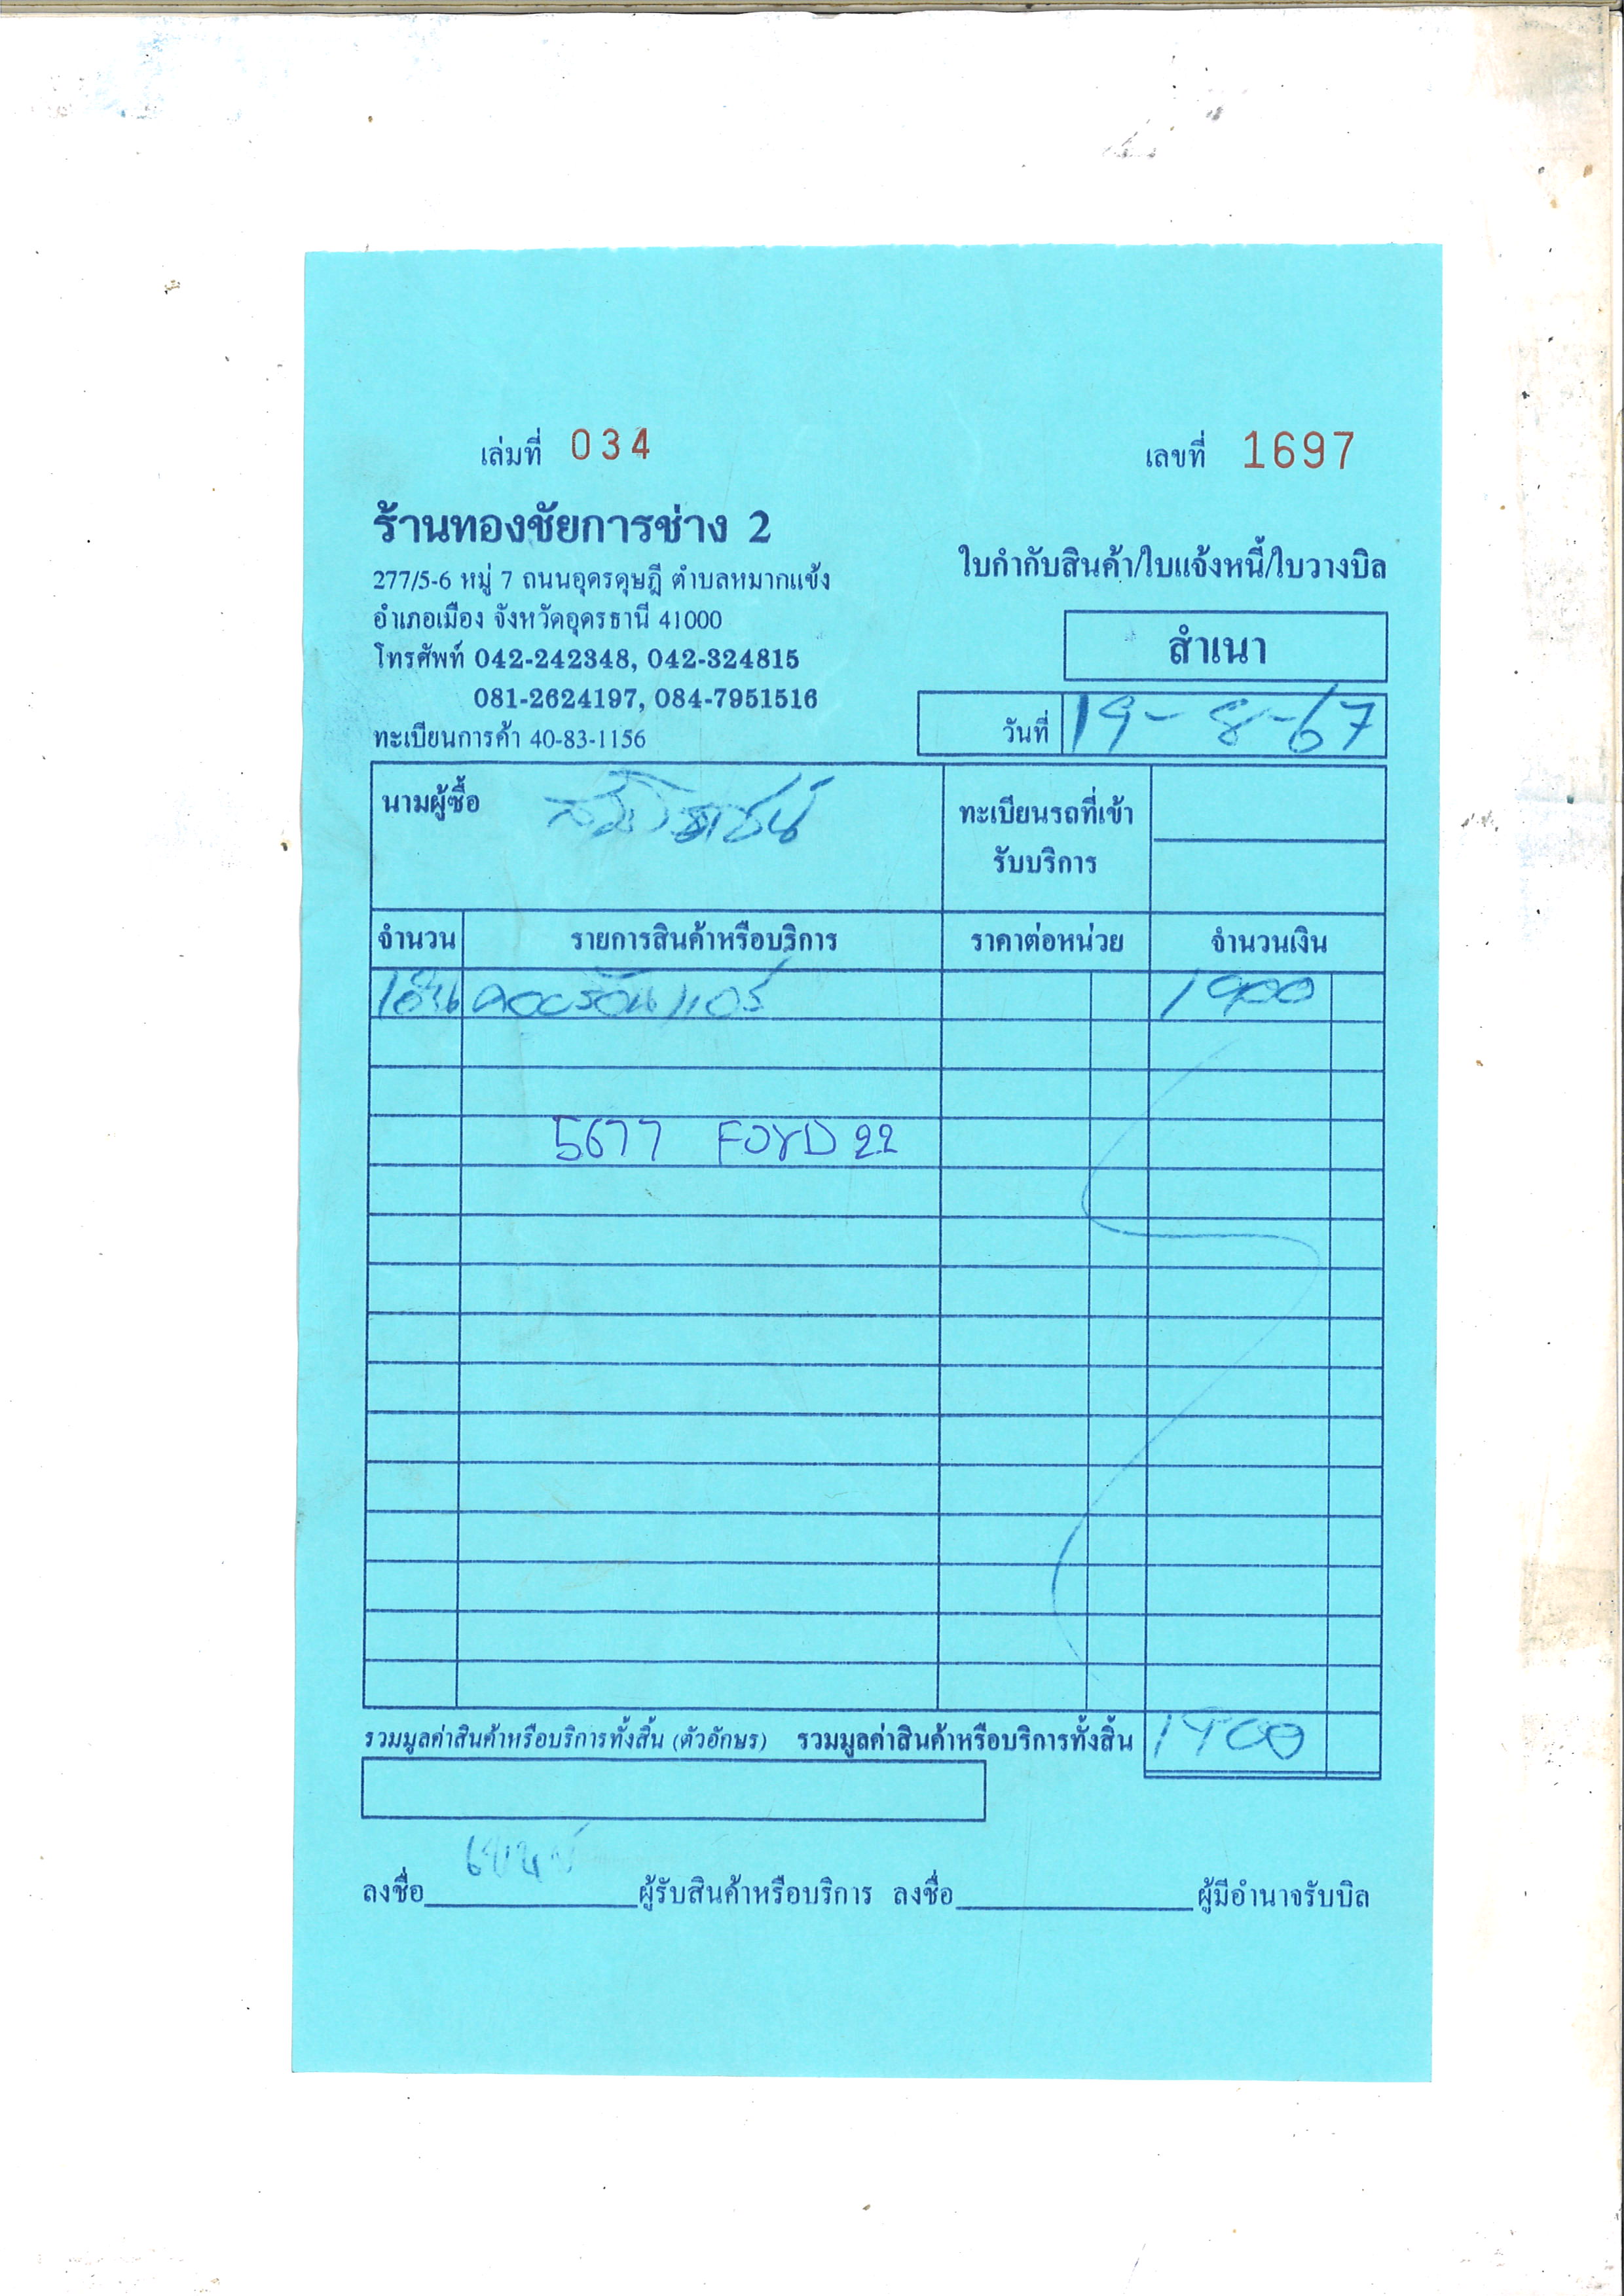 เล่มที่ 034
เลขที่ 1697
ร้านทองชัยการช่าง 2
277/5-6 หมู่ 7 ถนนอุดรดุษฎี ตำบลหมากแข้ง
อำเภอเมือง จังหวัดอุดรธานี 41000
โทรศัพท์ 042-242348, 042-324815
081-2624197, 084-7951516
ทะเบียนการค้า 40-83-1156
ใบกำกับสินค้า/ใบแจ้งหนี้/ใบวางบิล
สำเนา
วันที่ 19-8-67
นามผู้ซื้อ
ทะเบียนรถที่เข้า
รับบริการ
จำนวน รายการสินค้าหรือบริการ ราคาต่อหน่วย จำนวนเงิน
1900
5677 FORD 22
รวมมูลค่าสินค้าหรือบริการทั้งสิ้น (ตัวอักษร) รวมมูลค่าสินค้าหรือบริการทั้งสิ้น 1900
ลงชื่อ ผู้รับสินค้าหรือบริการ ลงชื่อ ผู้มีอำนาจรับบิล